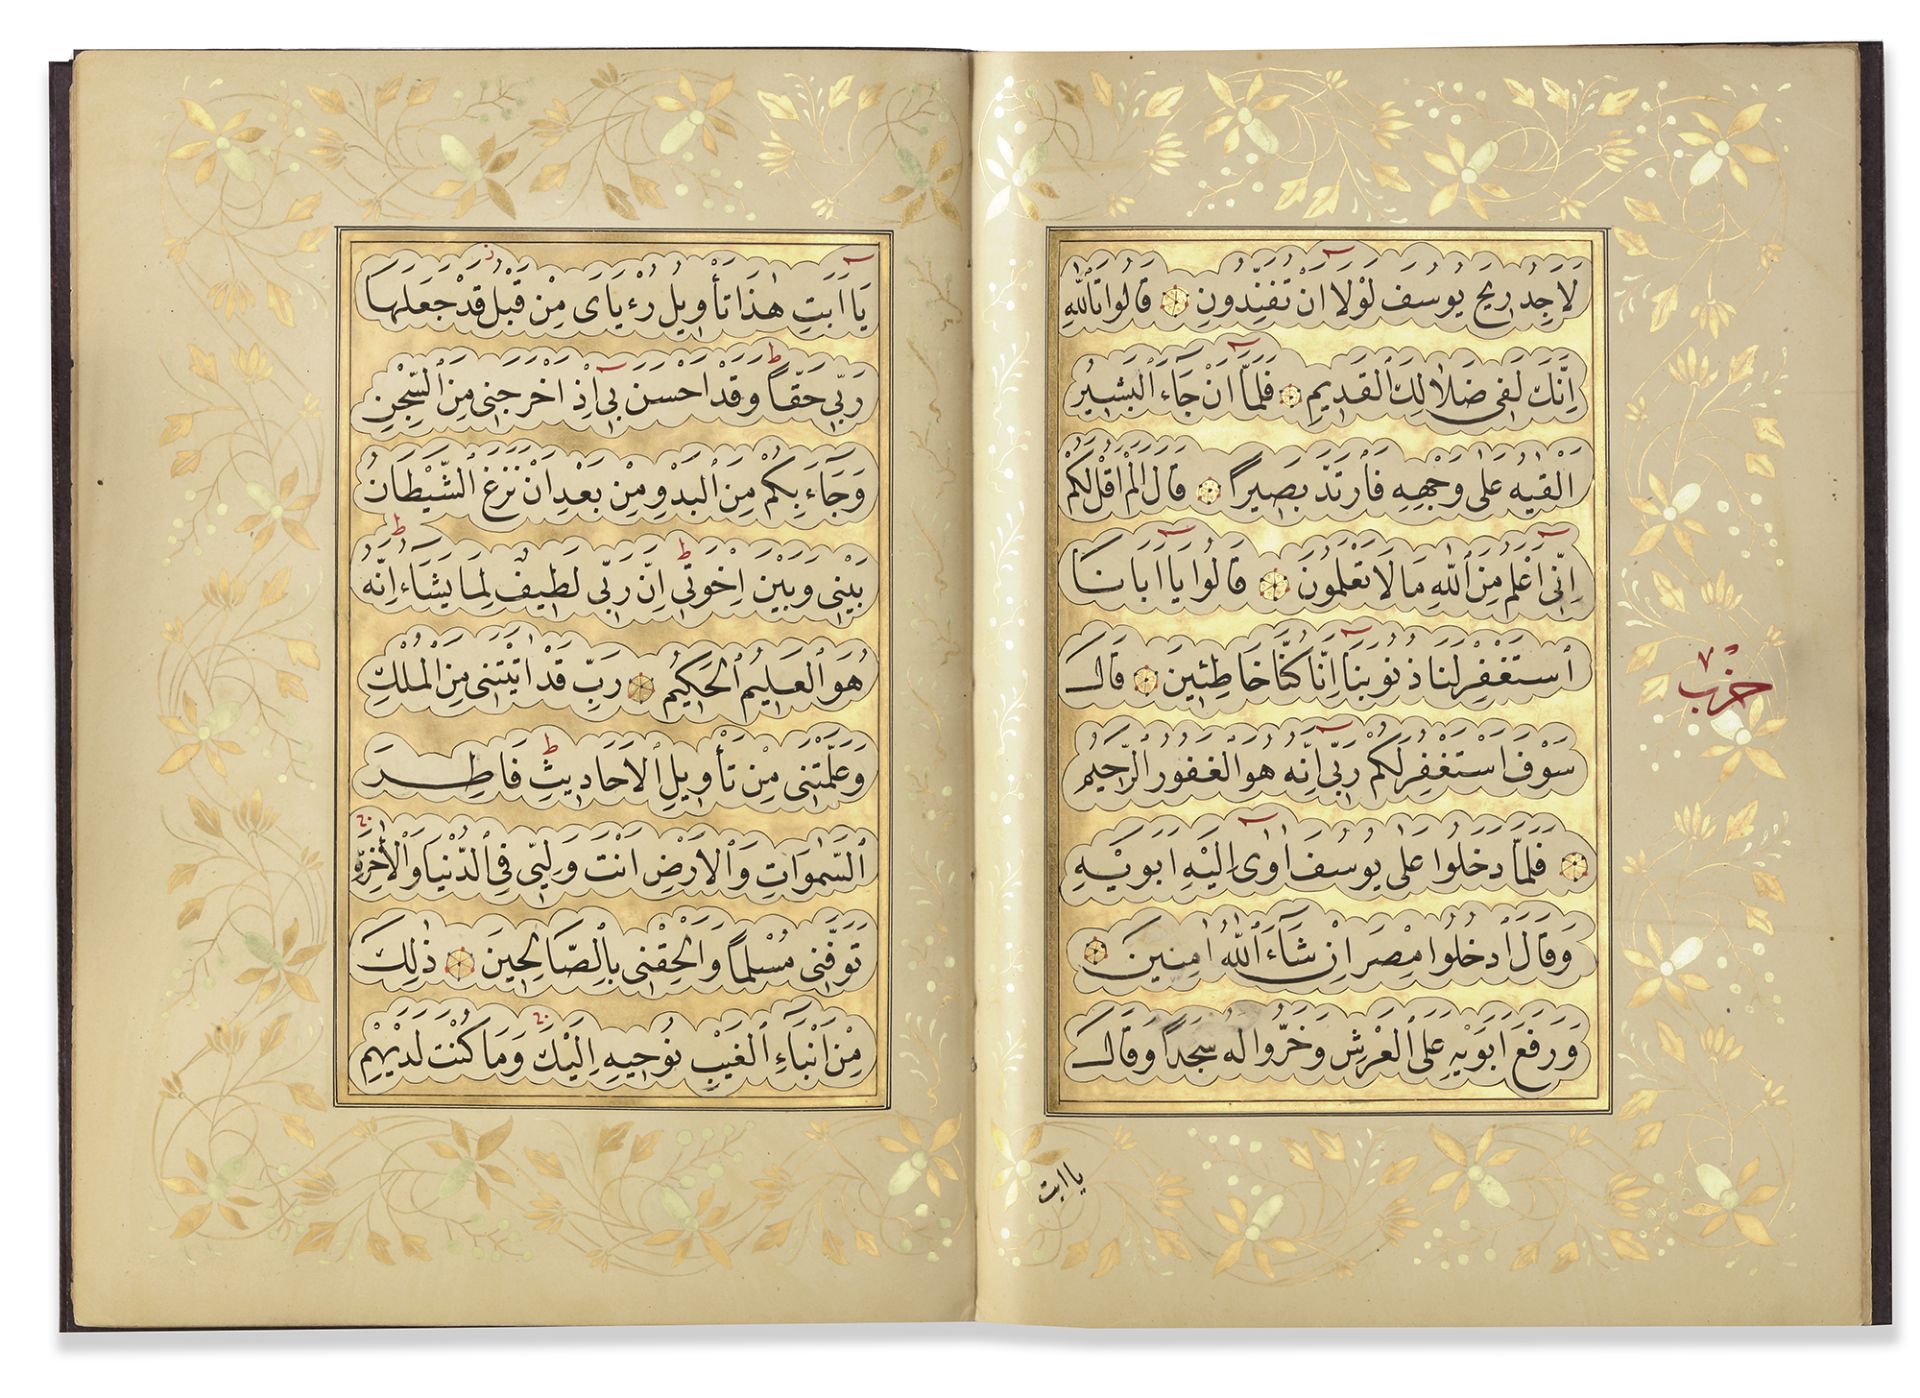 لَاَجِدُ رٖيحَ يُوسُفَ لَوْلَا اَنْ تُفَنِّدُونِ ۞ قَالُوا تَاللّٰهِ
اِنَّكَ لَفٖى ضَلَالِكَ الْقَدٖيمِ ۞ فَلَمَّا اَنْ جَاءَ الْبَشٖيرُ
اَلْقٰيهُ عَلٰى وَجْهِهٖ فَارْتَدَّ بَصٖيرًا ۞ قَالَ اَلَمْ اَقُلْ لَكُمْ
اِنّٖى اَعْلَمُ مِنَ اللّٰهِ مَا لَا تَعْلَمُونَ ۞ قَالُوا يَا اَبَانَا
اسْتَغْفِرْ لَنَا ذُنُوبَنَا اِنَّا كُنَّا خَاطِئٖينَ ۞ قَالَ
سَوْفَ اَسْتَغْفِرُ لَكُمْ رَبّٖى اِنَّهُ هُوَ الْغَفُورُ الرَّحٖيمُ
۞ فَلَمَّا دَخَلُوا عَلٰى يُوسُفَ اٰوٰى اِلَيْهِ اَبَوَيْهِ
وَقَالَ ادْخُلُوا مِصْرَ اِنْ شَاءَ اللّٰهُ اٰمِنٖينَ ۞
وَرَفَعَ اَبَوَيْهِ عَلَى الْعَرْشِ وَخَرُّوا لَهُ سُجَّدًا وَقَالَ
حزب
يا ابت
يَا اَبَتِ هٰذَا تَأْوٖيلُ رُءْيَاىَ مِنْ قَبْلُ قَدْ جَعَلَهَا
رَبّٖى حَقًّا وَقَدْ اَحْسَنَ بٖى اِذْ اَخْرَجَنٖى مِنَ السِّجْنِ
وَجَاءَ بِكُمْ مِنَ الْبَدْوِ مِنْ بَعْدِ اَنْ نَزَغَ الشَّيْطَانُ
بَيْنٖى وَبَيْنَ اِخْوَتٖى اِنَّ رَبّٖى لَطٖيفٌ لِمَا يَشَاءُ اِنَّهُ
هُوَ الْعَلٖيمُ الْحَكٖيمُ ۞ رَبِّ قَدْ اٰتَيْتَنٖى مِنَ الْمُلْكِ
وَعَلَّمْتَنٖى مِنْ تَأْوٖيلِ الْاَحَادٖيثِ فَاطِرَ
السَّمٰوَاتِ وَالْاَرْضِ اَنْتَ وَلِيّٖى فِى الدُّنْيَا وَالْاٰخِرَةِ
تَوَفَّنٖى مُسْلِمًا وَاَلْحِقْنٖى بِالصَّالِحٖينَ ۞ ذٰلِكَ
مِنْ اَنْبَاءِ الْغَيْبِ نُوحٖيهِ اِلَيْكَ وَمَا كُنْتَ لَدَيْهِمْ